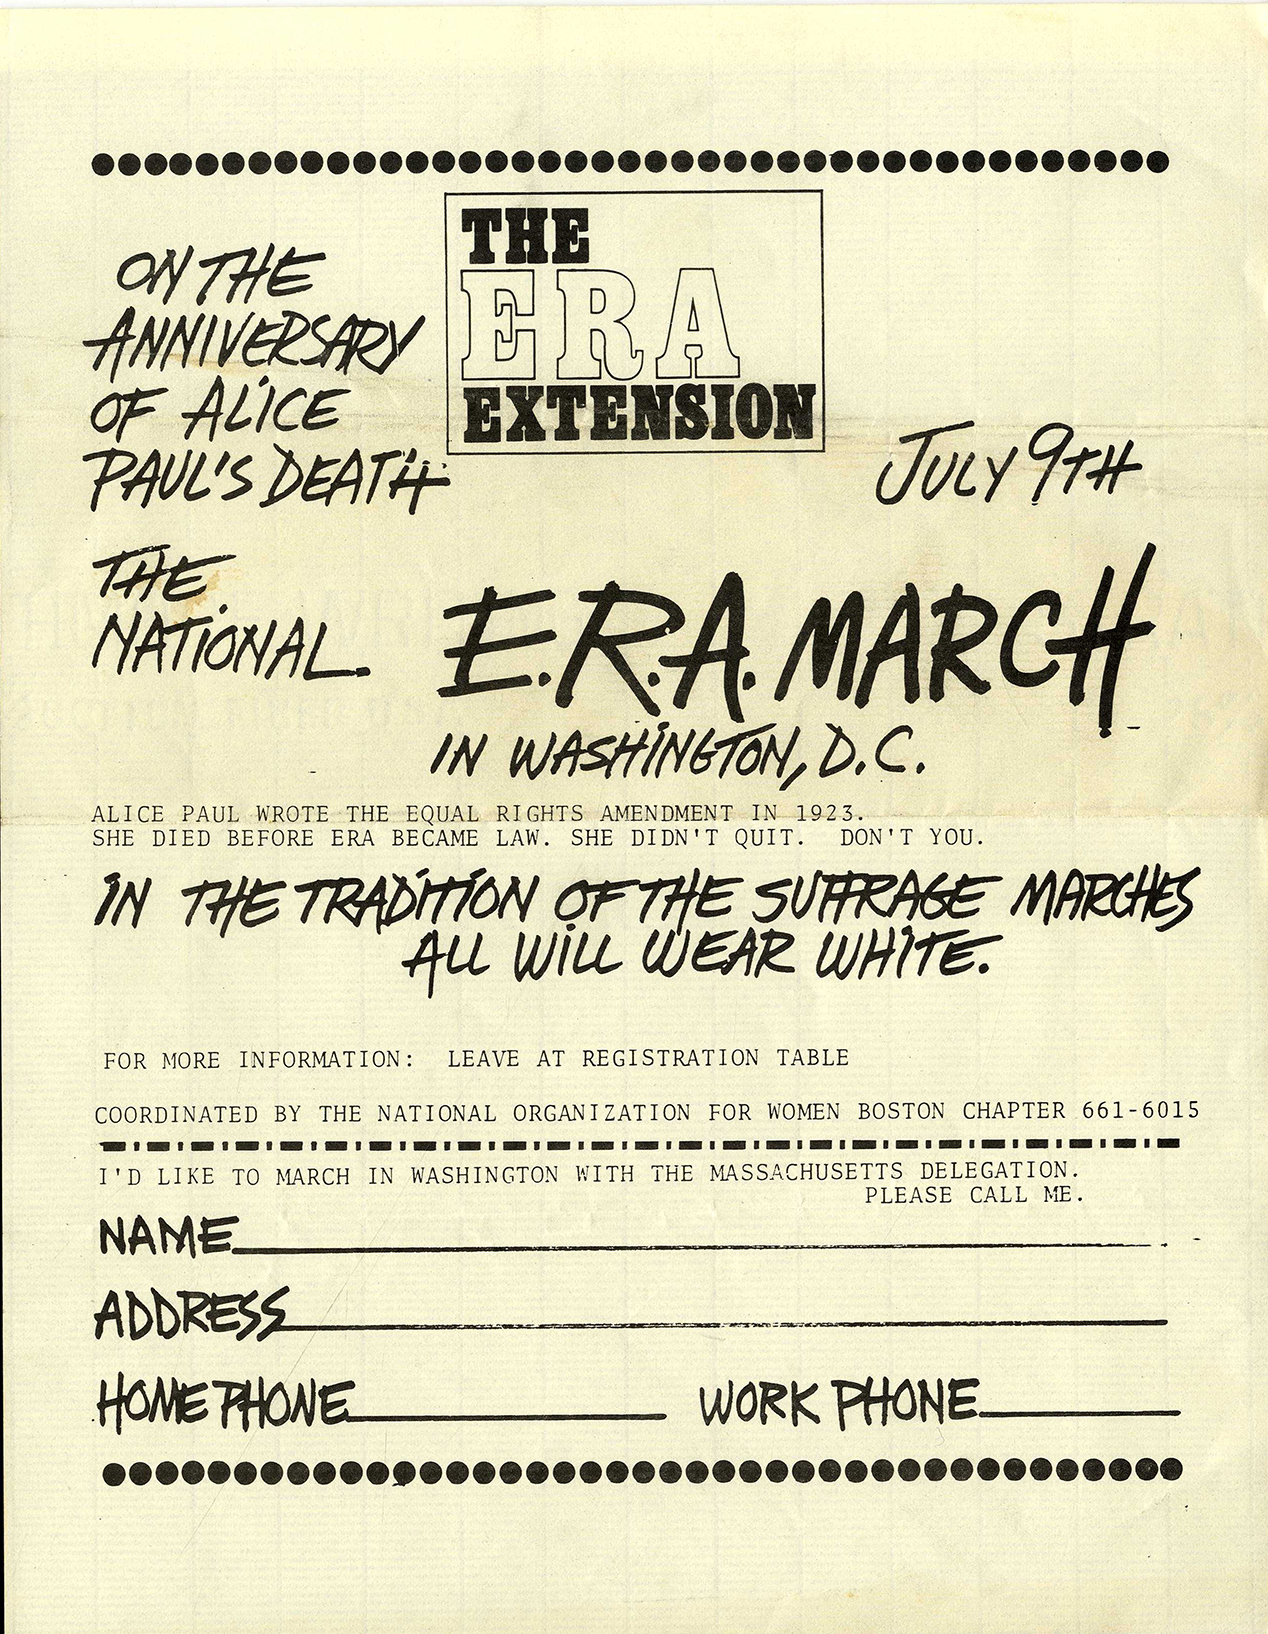 THE
ERA
EXTENSION
ON THE
ANNIVERSARY
OF ALICE
PAUL'S DEATH
JULY 9TH
THE
NATIONAL
E.R.A. MARCH
IN WASHINGTON, D.C.
ALICE PAUL WROTE THE EQUAL RIGHTS AMENDMENT IN 1923.
SHE DIED BEFORE ERA BECAME LAW. SHE DIDN'T QUIT. DON'T YOU.
IN THE TRADITION OF THE SUFFRAGE MARCHES
ALL WILL WEAR WHITE.
FOR MORE INFORMATION: LEAVE AT REGISTRATION TABLE
COORDINATED BY THE NATIONAL ORGANIZATION FOR WOMEN BOSTON CHAPTER 661-6015
I'D LIKE TO MARCH IN WASHINGTON WITH THE MASSACHUSETTS DELEGATION.
PLEASE CALL ME.
NAME
ADDRESS
HOME PHONE WORK PHONE